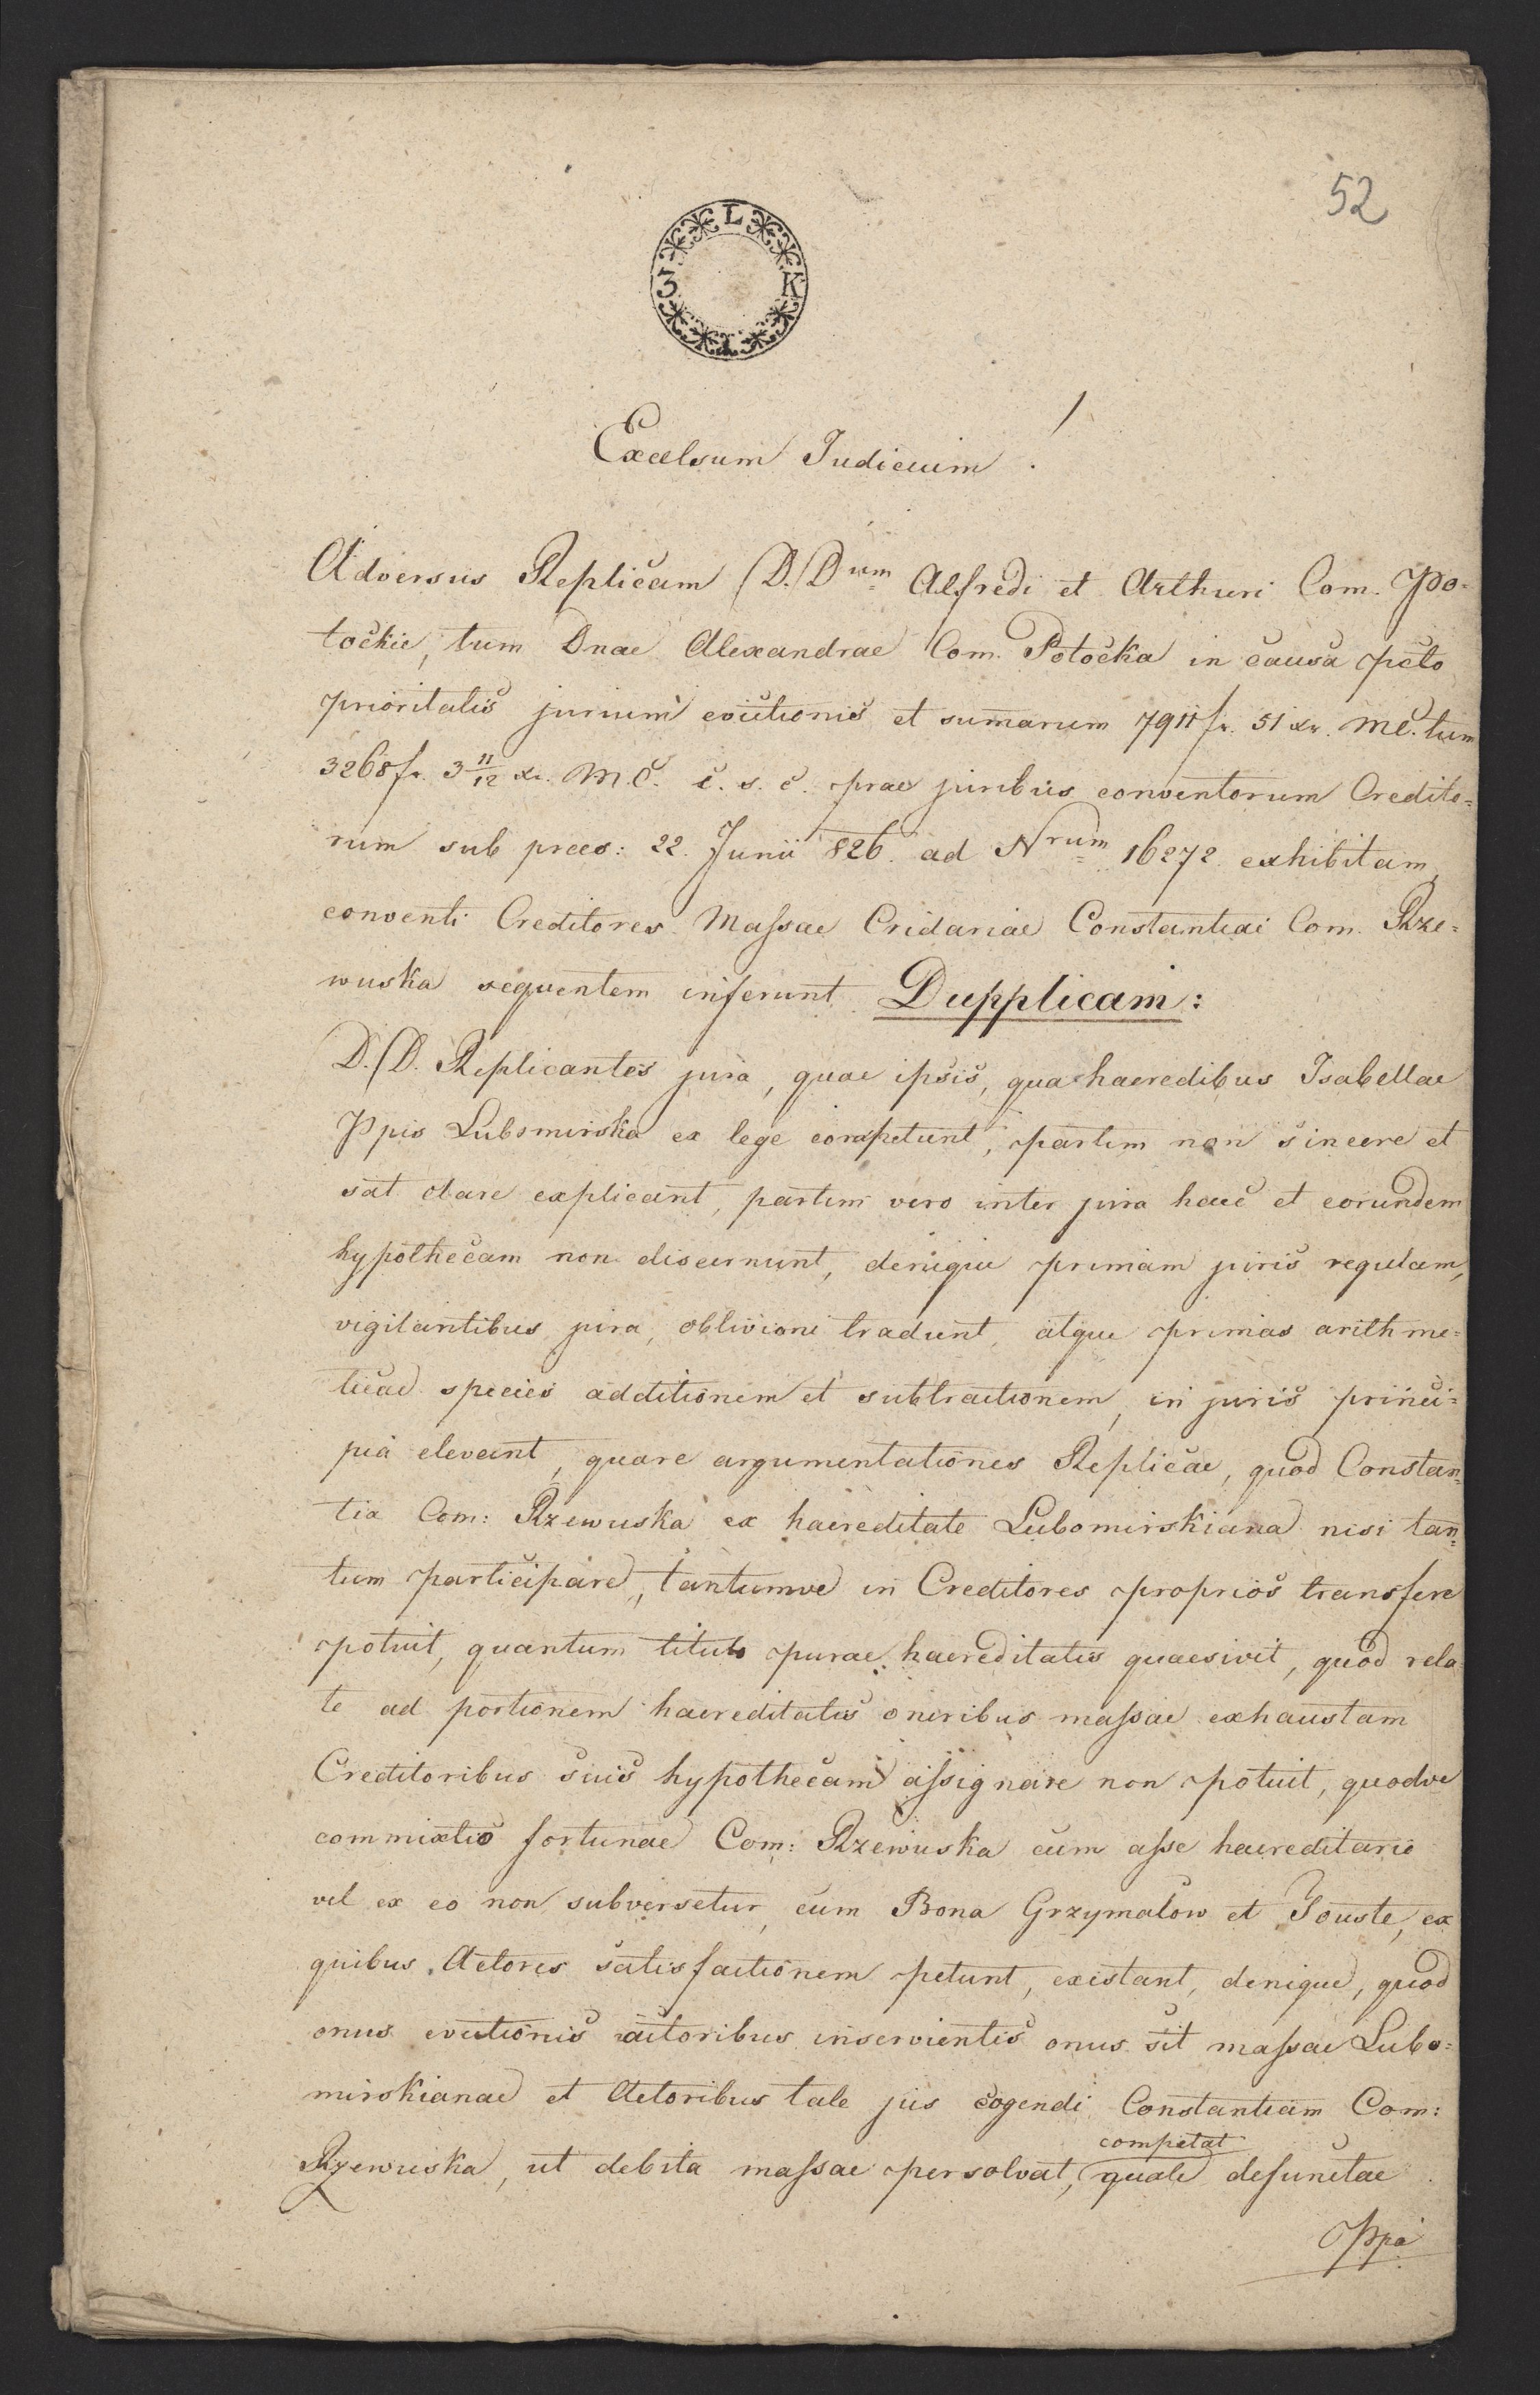 52
L
3 K
I
Excelsum Judicium !
Adversus Replicam D.D rum Alfredi et Arthuri Com. Po=
tockie, tum Dnae Alexandrae Com. Potocka in causa pcto
prioritatis jurium evictionis et sumarum 7911 fr. 51 xr. MC. tum
3268 fr. 3 11/12 xr. M.C. c. s. c. prae juribus conventorum Credito=
rum sub praes: 22. Junii 826. ad Nrum 16272 exhibitam,
conventi Creditores Massae Cridariae Constantiae Com. Rze=
wuska sequentem inferunt Dupplicam:
D.D. Replicantes jura, quae ipsis, qua haeredibus Isabellae
Ppis Lubomirska ex lege competunt, partim non sincere et
sat clare explicant, partim vero inter jura haec et eorundem
hypothecam non discernunt, denique primam juris regulam,
vigilantibus jura, oblivioni tradunt, atque primas arithme=
ticae species additionem et subtractionem, in juris princi=
pia elevant, quare argumentationes Replicae, quod Constan=
tia Com: Rzewuska ex haereditate Lubomirskiana nisi tan=
tum participare, tantumve in Creditores proprios transfere
potuit, quantum titulo purae haereditatis quaesivit, quod rela
te ad portionem haereditatis oneribus massae exhaustam
Creditoribus suis hypothecam assignare non potuit, quodve
commixtio fortunae Com: Rzewuska cum asse haereditario
vel ex eo non subversetur, cum Bona Grzymalow et Touste, ex
quibus Actores satisfactionem petunt, existant, denique, quod
onus evictionis actoribus inservientis onus sit massae Lubo=
mirskianae et Actoribus tale jus cogendi Constantiam Com:
competat
Rzewuska, ut debita massae persolvat, quale defunctae
Ppa